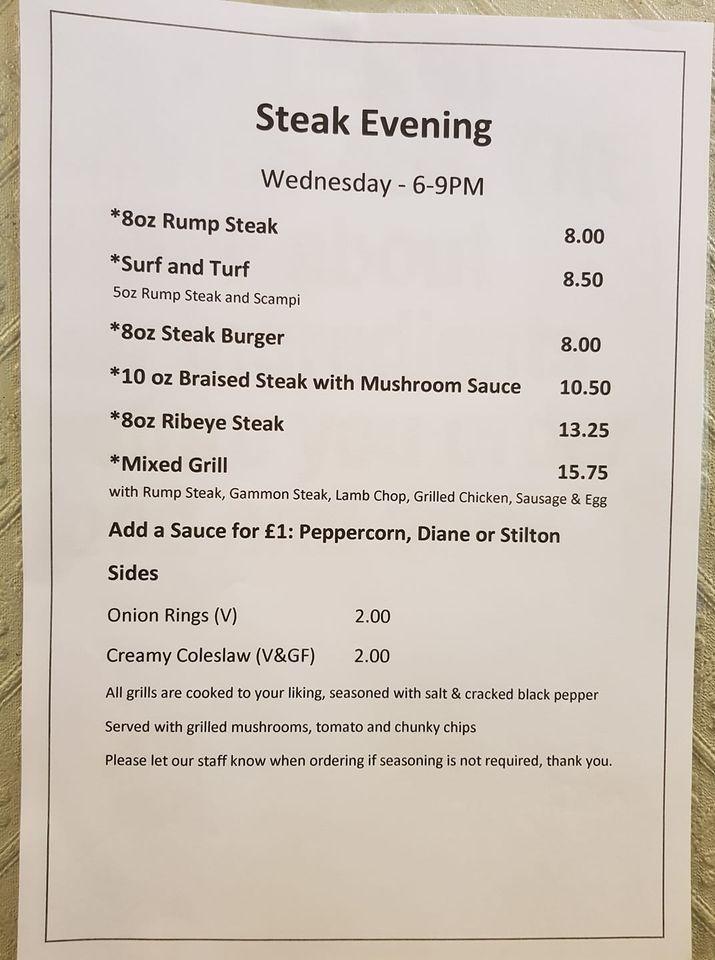 Steak Evening
Wednesday - 6-9PM
*8oz Rump Steak 8.00
*Surf and Turf 8.50
5oz Rump Steak and Scampi
*8oz Steak Burger 8.00
*10 oz Braised Steak with Mushroom Sauce 10.50
*8oz Ribeye Steak 13.25
*Mixed Grill 15.75
with Rump Steak, Gammon Steak, Lamb Chop, Grilled Chicken, Sausage & Egg
Add a Sauce for £1: Peppercorn, Diane or Stilton
Sides
Onion Rings (V) 2.00
Creamy Coleslaw (V&GF) 2.00
All grills are cooked to your liking, seasoned with salt & cracked black pepper
Served with grilled mushrooms, tomato and chunky chips
Please let our staff know when ordering if seasoning is not required, thank you.